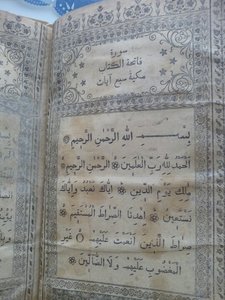 سورة
فاتحة الكتاب
مكية سبع آيات
بِسْمِ اللهِ الرَّحْمنِ الرَّحِيمِ
اَلْحَمْدُ لِلّهِ رَبِّ الْعلَمِينَ الرَّحْمنِ الرَّحِيمِ
ملِكِ يَوْمِ الدِّينِ اِيَّاكَ نَعْبُدُ وَاِيَّاكَ
نَسْتَعِينُ اِهْدِنَا الصِّرَاطَ الْمُسْتَقِيمَ
صِرَاطَ الَّذِينَ اَنْعَمْتَ عَلَيْهِمْ غَيْرِ
الْمَغْضُوبِ عَلَيْهِمْ وَلَا الضَّالِّينَ